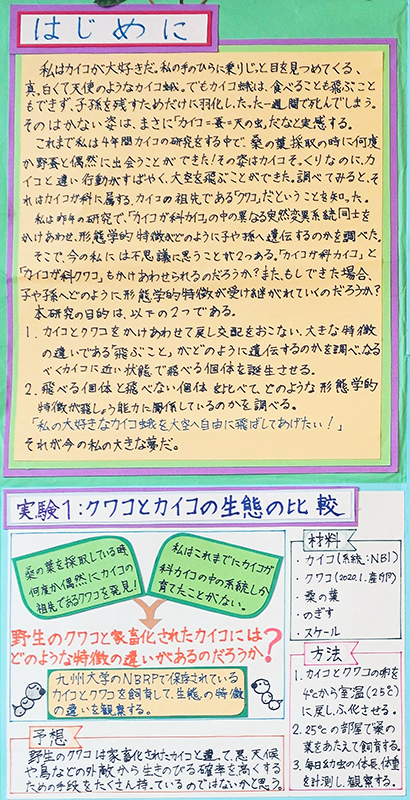 はじめに
私はカイコが大好きだ。私の手のひらに乗りじっと目を見つめてくる、
真っ白くて天使のようなカイコ蛾。でもカイコ蛾は、食べることも飛ぶこと
もできず、子孫を残すためだけに羽化し、たった一週間で死んでしまう。
そのはかない姿は、まさに「カイコ=蚕=天の虫」だなと実感する。
これまで私は4年間カイコの研究をする中で、桑の葉採取の時に何度
か野蚕と偶然に出会うことができた!その姿はカイコそっくりなのに、カ
イコと違い行動がすばやく、大空を飛ぶことができた。調べてみると、そ
れはカイコガ科に属する、カイコの祖先である「クワコ」だということを知った。
私は昨年の研究で、「カイコガ科カイコの中の異なる突然変異系統」同士を
かけあわせ、形態学的特徴がどのように子や孫へ遺伝するのかを調べた。
そこで、今の私には不思議に思うことが2つある。「カイコガ科カイコ」と
「カイコガ科クワコ」もかけあわせられるのだろうか?また、もしできた場合、
子や孫へどのように形態学的特徴が受け継がれていくのだろうか?
本研究の目的は、以下の2つである。
1. カイコとクワコをかけあわせて戻し交配をおこない、大きな特徴
の違いである「飛ぶこと」がどのように遺伝するのかを調べ、なる
べくカイコに近い状態で飛べる個体を誕生させる。
2. 飛べる個体と飛べない個体を比べて、どのような形態学的
特徴が飛しょう能力に関係しているのかを調べる。
「私の大好きなカイコ蛾を大空へ自由に飛ばしてあげたい!」
それが今の私の大きな夢だ。
実験1:クワコとカイコの生態の比較
桑の葉を採取している時
何度か偶然にカイコの
祖先であるクワコを発見!
私はこれまでにカイコガ
科カイコの中の系統しか
育てたことがない。
野生のクワコと家畜化されたカイコには
どのような特徴の違いがあるのだろうか?
九州大学のNBRPで保存されている
カイコとクワコを飼育して、生態の特徴
の違いを観察する。
予想
野生のクワコは家畜化されたカイコと違って、悪天候
や鳥などの外敵から生きのびる確率を高くする
ための手段をたくさん持っているのではないかと思う。
材料
・カイコ(系統:NB1)
・クワコ(2020.1.産卵円)
・桑の葉
・のぎす
・スケール
方法
1. カイコとクワコの卵を
4℃から室温(25℃)
に戻し、ふ化させる。
2. 25℃の部屋で桑の
葉をあたえて飼育する。
3. 毎日幼虫の体長、体重
を計測し、観察する。